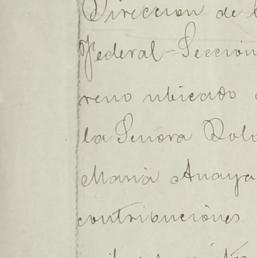 Direccion de
Federal-Seccion
reno ubicado
la Señora Dolo
Maria Anaya
contribuciones